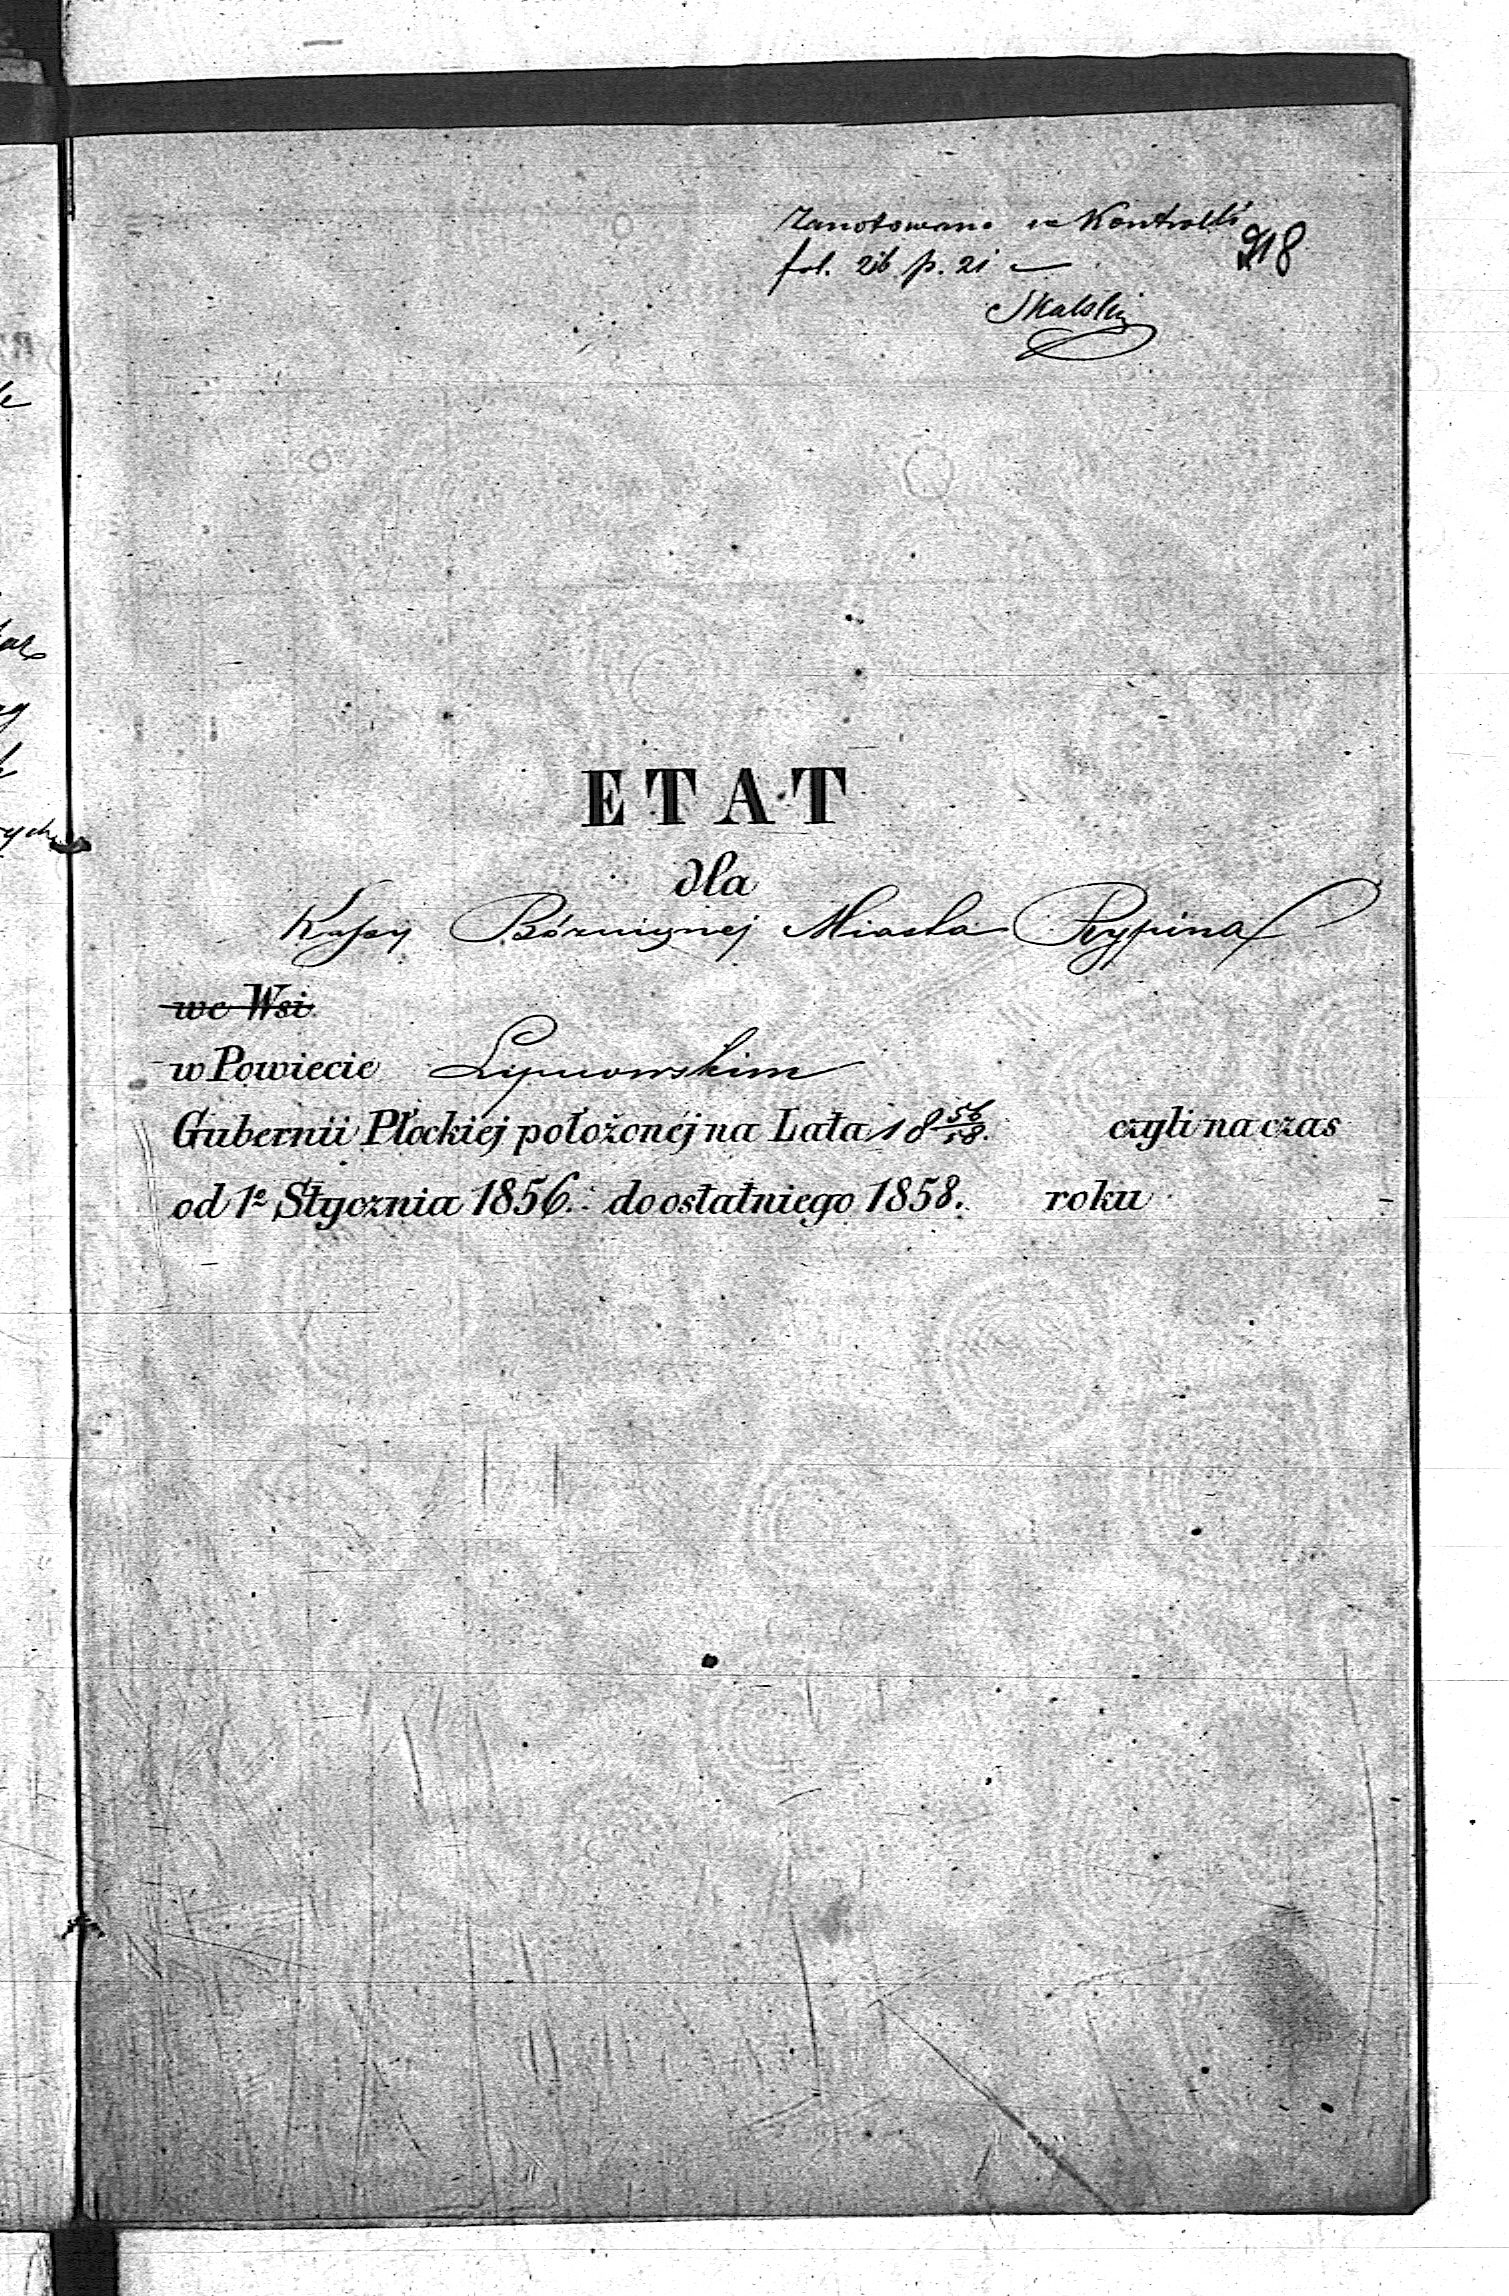 Zanotowano w Kontrolli
918
fol. 26 p. 21 —
Skalski
ETAT
dla
Kassy Bóżnicznej Miasta Rypina
we Wsi
w Powiecie Lipnowskim
Gubernii Płockiej położonéj na Lata 18 56/58. czyli na czas
od 1º Stycznia 1856. do ostatniego 1858. roku